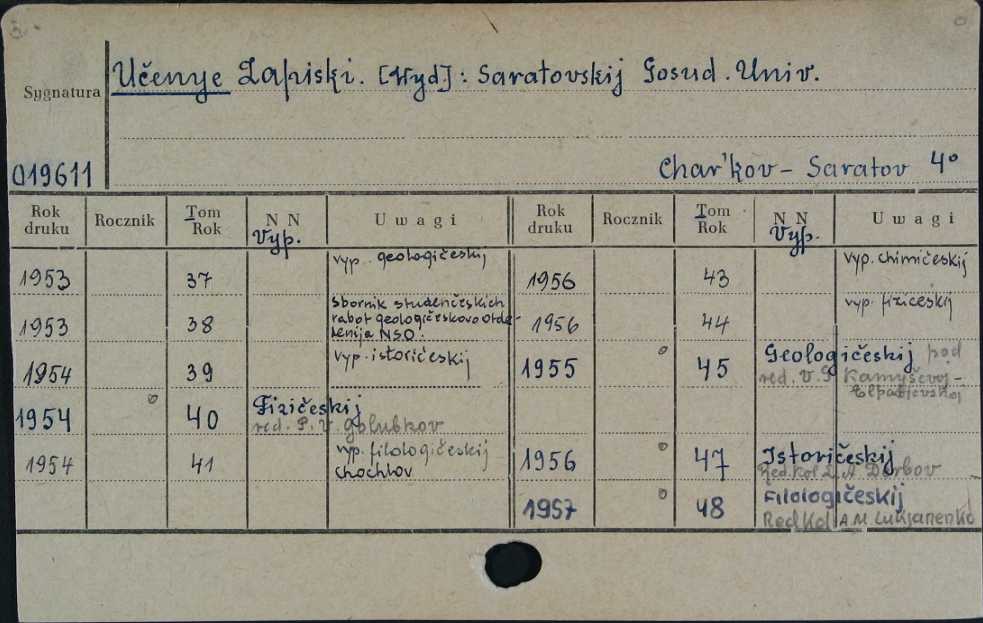 Učenye Zapiski. [Wyd]: Saratovskij Gosud. Univ.
Sygnatura
019611
Char'kov - Saratov 4°
Rok druku Rocznik Tom Rok N N Vyp. Uwagi
1953 37 vyp. geologičeskij
1953 38 sbornik studenčeskich
rabot geologičeskovo otde-
lenija NSO.
1954 39 vyp. istoričeskij
1954 40 Fizičeskij
red. P. V. Golubkov
1954 41 vyp. filologičeskij
Chochlov
Rok druku Rocznik Tom Rok N N Vyp. Uwagi
1956 43 vyp. chimičeskij
1956 44 vyp. fizičeskij
1955 45 Geologičeskij pod
red. V. G. Kamyševoj-
Elpatjevskoj
1956 47 Istoričeskij
Red. kol L. A. Derbov
1957 48 Filologičeskij
Red kol A M Lukjanenko